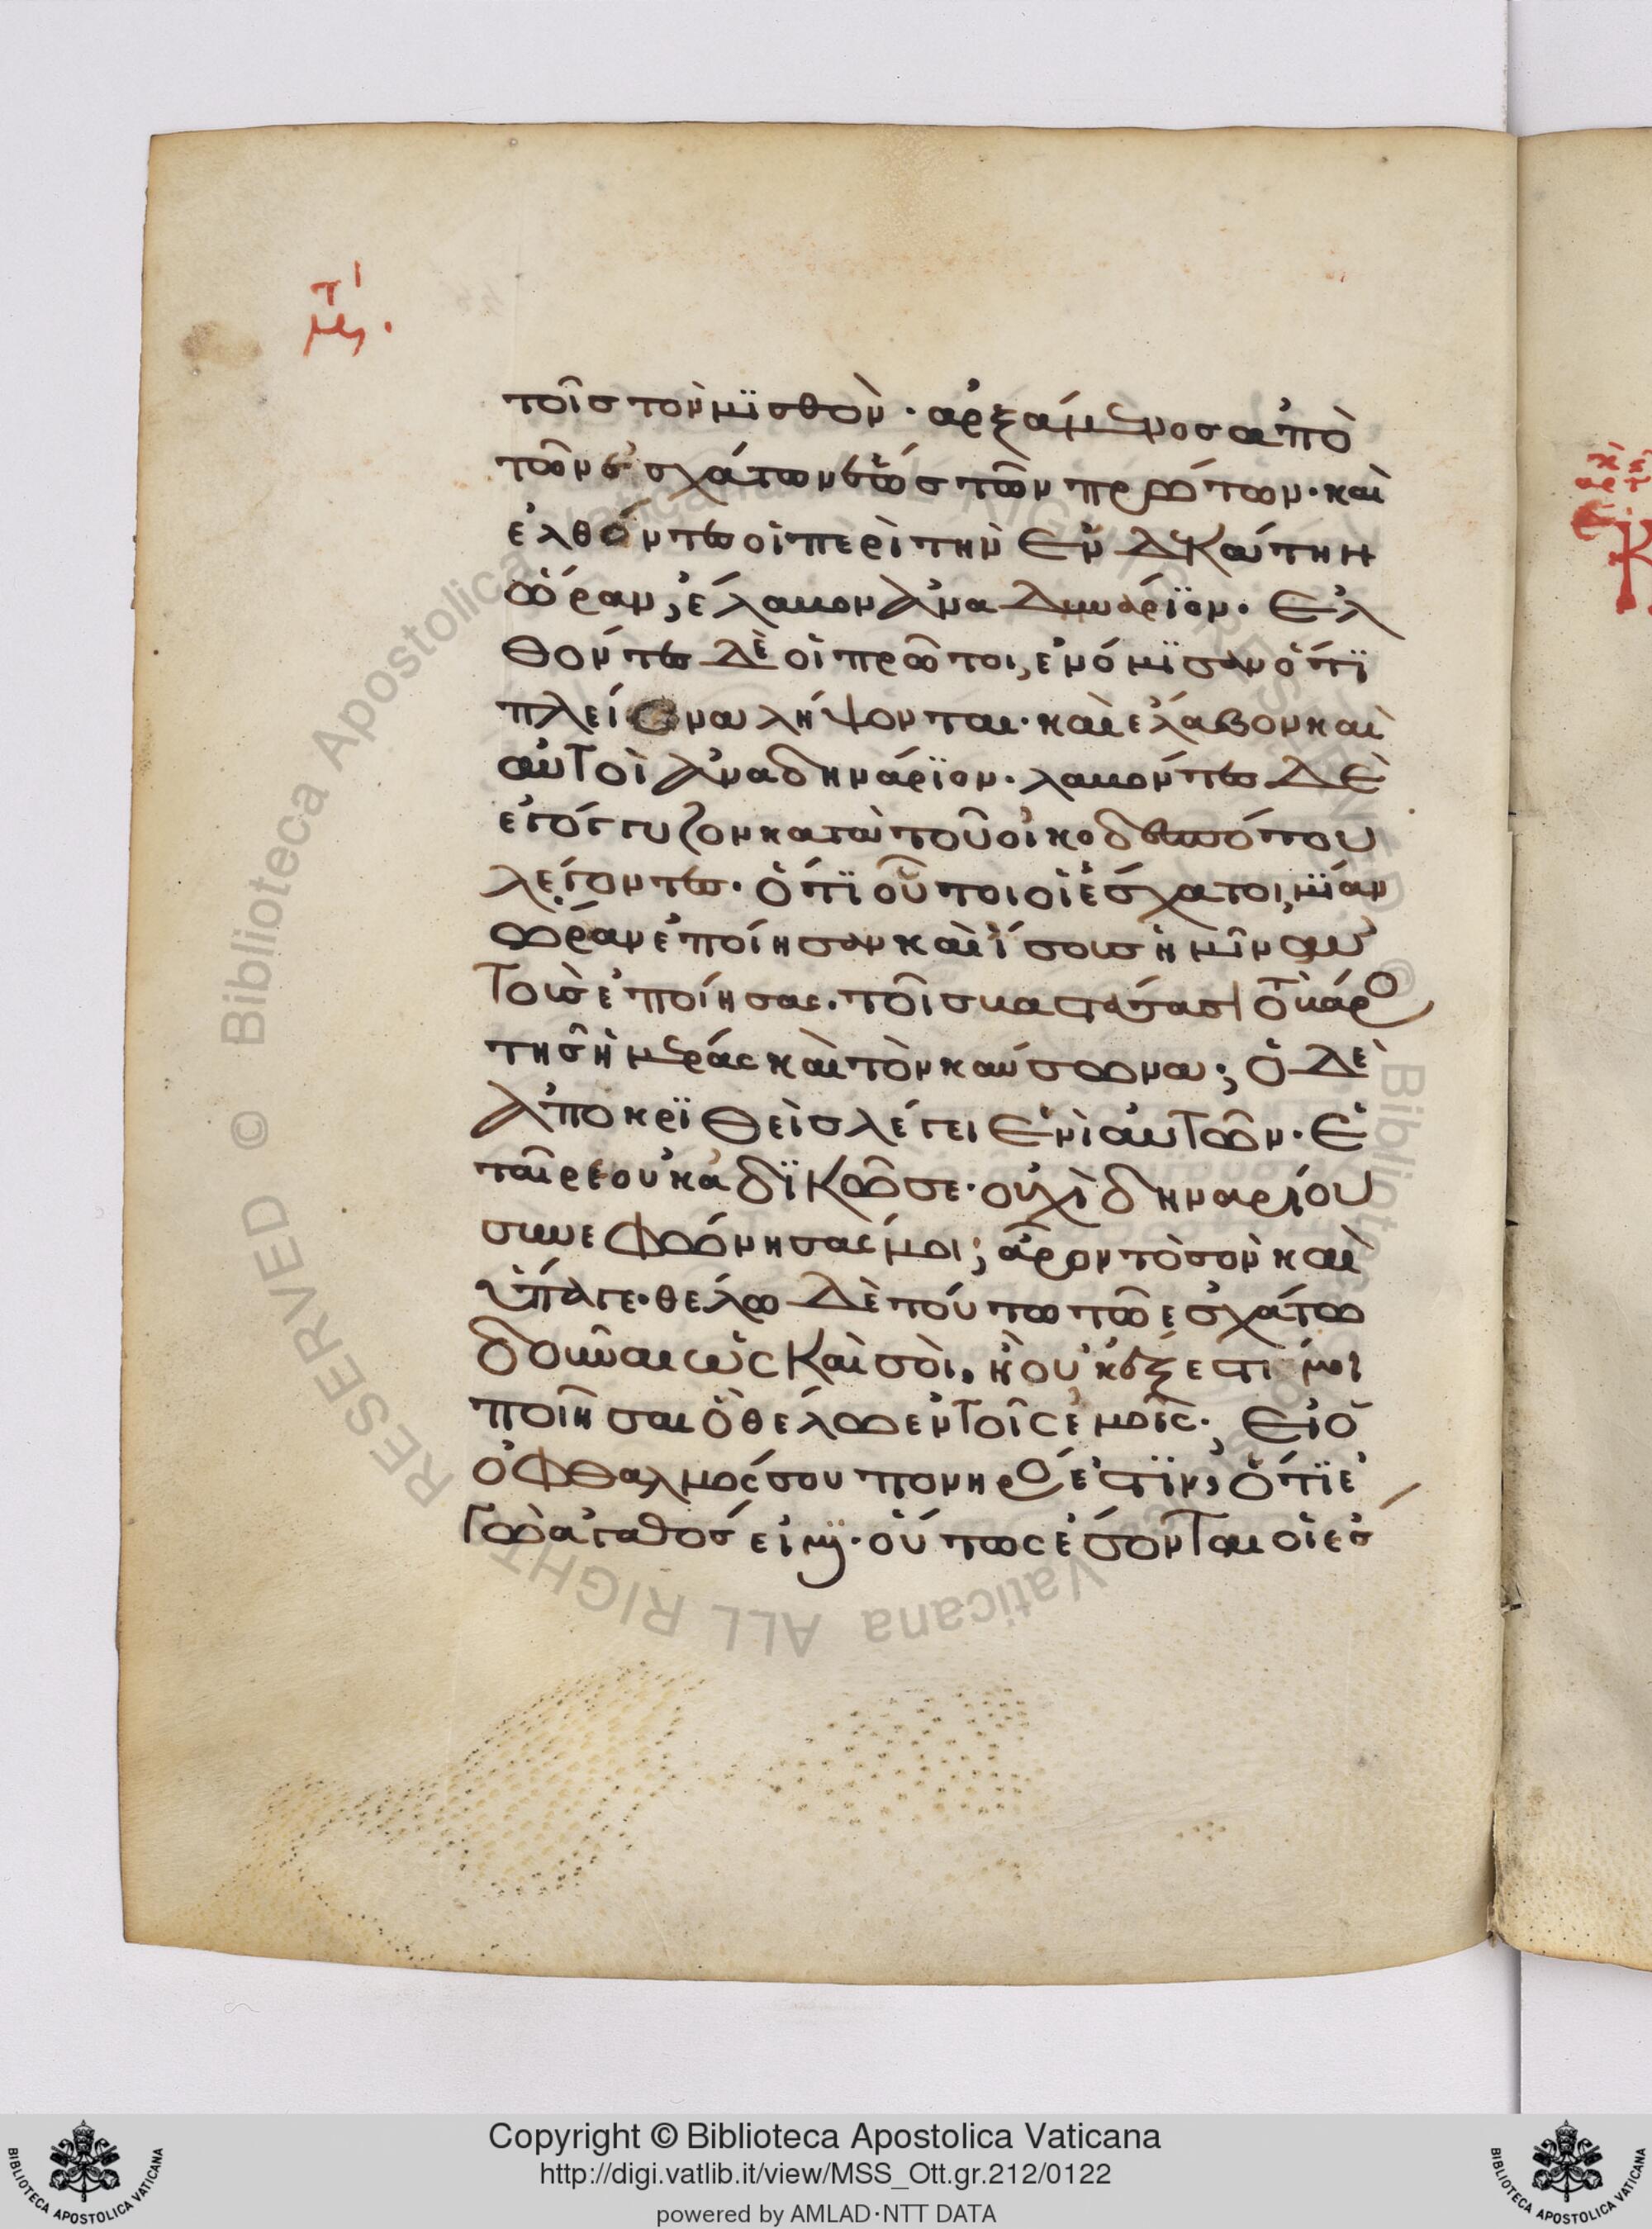 τοῖσ τὸν μϊσθὸν · ἀρξάμενοσ ἀπὸ
τῶν ἐσχάτων ἕωσ τῶν πρώτων · καὶ
ἐλθόντες οἱ περὶ τὴν ἑνδεκάτην
ὥραν, ἔλαβον ἀνα δηνάρϊον · ἐλ
θόντες δὲ οἱ πρῶτοι, ἐνόμϊσαν ὅτϊ
πλείονα λήψονται · καὶ ἔλαβον καὶ
αὐτοὶ ἀνα δηνάρϊον · λαβόντες δὲ
ἐγόγγυζον κατὰ τοῦ οἰκοδεσπότου
λέγοντες · ὅτϊ οὗτοι οἱ ἔσχατοι, μϊάν
ὥραν ἐποίησαν καὶ ἴσουσ ἡμῖν αὐ
τοὺσ ἐποίησας · τοῖσ βαστάσασι τὸ βάρο
τῆσ ἡμέρας καὶ τὸν καύσωνα; ὁ δὲ
ἀποκρϊθεὶσ λέγει ἑνὶ αὐτῶν · ἑ
ταῖρε οὐκ ἀδϊκῶ σε · οὐχὶ δηναρίου
συνεφώνησάς μοι; ἆρον τὸ σὸν καὶ
ὕπαγε · θέλω δὲ τούτω τῶ ἐσχάτω
δοῦναι ὡς καὶ σοὶ, ἢ οὐκ ἔξεστί μοι
ποιῆσαι ὃ θέλω ἐν τοῖς ἐμοῖς; εἰ ὁ
ὀφθαλμός σου πονηρό ἐστϊν, ὅτϊ ἐ
γὼ ἀγαθόσ εἰμϊ · οὕτως ἔσονται οἱ ἔσ
Copyright © Biblioteca Apostolica Vaticana
http://digi.vatlib.it/view/MSS_Ott.gr.212/0122
powered by AMLAD·NTT DATA
BIBLIOTECA APOSTOLICA VATICANA
BIBLIOTECA APOSTOLICA VATICANA